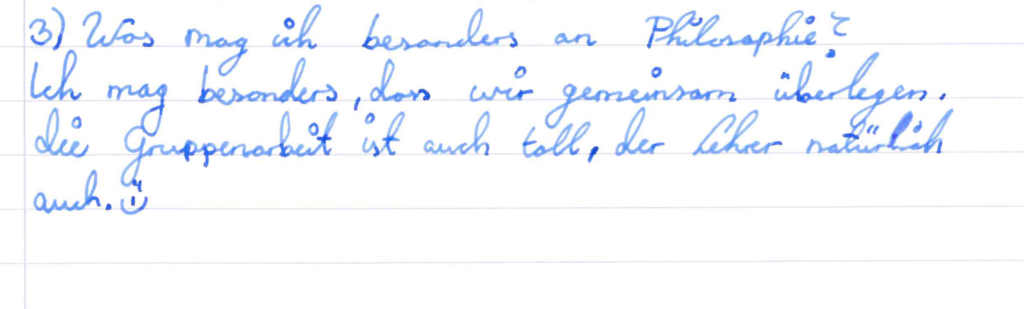 3) Was mag ich besonders an Philosophie?
Ich mag besonders, dass wir gemeinsam überlegen.
Die Gruppenarbeit ist auch toll, der Lehrer natürlich
auch. :)